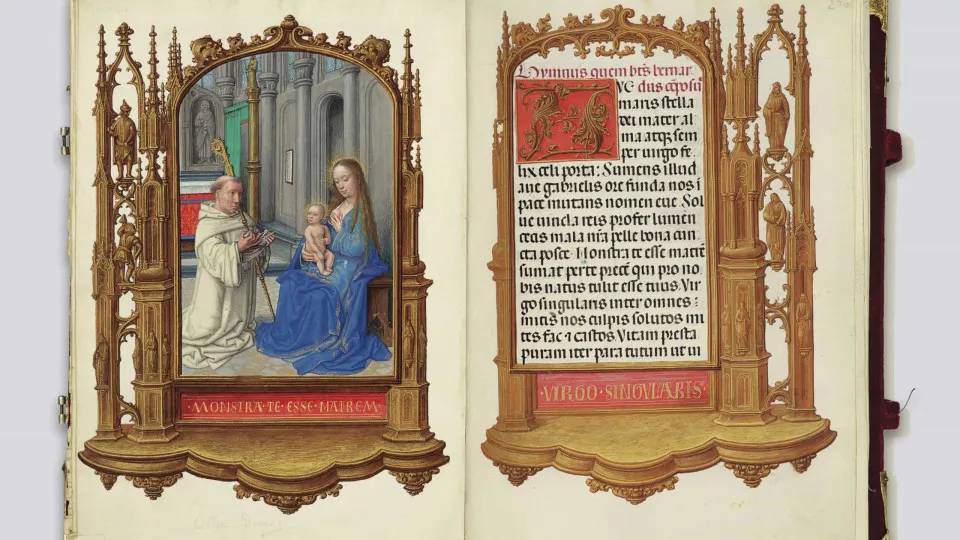 ·MONSTRA·TE·ESSE·MATREM·
Hymnus quem bt̄s bernar
AVE dus cōposuit
maris stella
dei mater al
ma atq; sem
per virgo fe
lix celi porta: Sumens illud
aue gabrielis ore funda nos ī
pace mutans nomen eue. Sol
ue vincla reis profer lumen
cecis mala nr̄a pelle bona cun
cta posce. Monstra te esse matrē
sumat per te precē qui pro no
bis natus tulit esse tuus. Vir
go singularis inter omnes :
mitis nos culpis solutos mi
tes fac ⁊ castos. Vitam presta
puram iter para tutum ut vi
·VIRGO·SINGVLARIS·